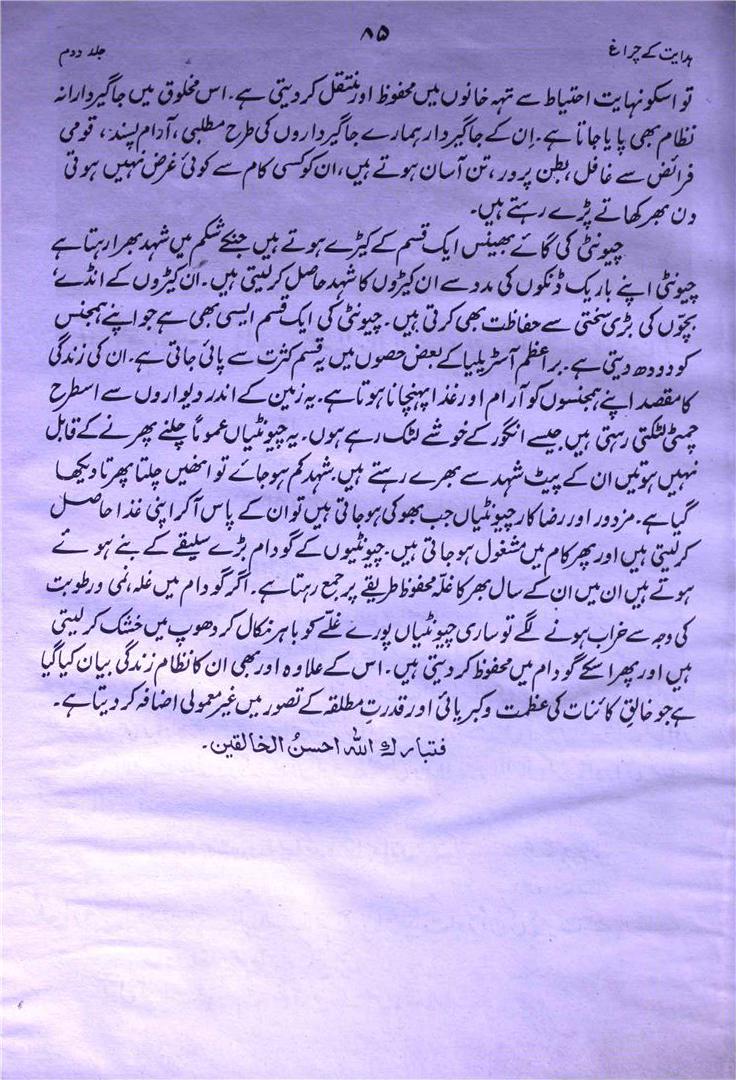 ہدایت کے چراغ ۸۵ جلد دوم
تو اسکو نہایت احتیاط سے تہہ خانوں میں محفوظ اور منتقل کر دیتی ہے۔ اس مخلوق میں جاگیردارانہ
نظام بھی پایا جاتا ہے۔ اِن کے جاگیردار ہمارے جاگیرداروں کی طرح مطلبی، آرام پسند، قومی
فرائض سے غافل، بطن پرور، تن آسان ہوتے ہیں، ان کو کسی کام سے کوئی غرض نہیں ہوتی
دن بھر کھاتے پڑے رہتے ہیں۔
چیونٹی کی گائے بھینس ایک قسم کے کیڑے ہوتے ہیں جنکے شکم میں شہد بھرا رہتا ہے
چیونٹی اپنے باریک ڈنکوں کی مدد سے ان کیڑوں کا شہد حاصل کر لیتی ہیں۔ ان کیڑوں کے انڈے،
بچّوں کی بڑی سختی سے حفاظت بھی کرتی ہیں۔ چیونٹی کی ایک قسم ایسی بھی ہے جو اپنے ہمجنس
کو دودھ دیتی ہے۔ براعظم آسٹریلیا کے بعض حصوں میں یہ قسم کثرت سے پائی جاتی ہے۔ ان کی زندگی
کا مقصد اپنے ہمجنسوں کو آرام اور غذا پہنچانا ہوتا ہے۔ یہ زمین کے اندر دیواروں سے اسطرح
چمٹی لٹکتی رہتی ہیں جیسے انگور کے خوشے لٹک رہے ہوں۔ یہ چیونٹیاں عموماً چلنے پھرنے کے قابل
نہیں ہوتیں ان کے پیٹ شہد سے بھرے رہتے ہیں۔ شہد کم ہو جائے تو انھیں چلتا پھرتا دیکھا
گیا ہے۔ مزدور اور رضا کار چیونٹیاں جب بھوکی ہو جاتی ہیں تو ان کے پاس آکر اپنی غذا حاصل
کر لیتی ہیں اور پھر کام میں مشغول ہو جاتی ہیں۔ چیونٹیوں کے گودام بڑے سلیقے کے بنے ہوئے
ہوتے ہیں ان میں ان کے سال بھر کا غلّہ محفوظ طریقے پر جمع رہتا ہے۔ اگر گودام میں غلہ، نمی و رطوبت
کی وجہ سے خراب ہونے لگے تو ساری چیونٹیاں پورے غلّے کو باہر نکال کر دھوپ میں خشک کر لیتی
ہیں اور پھر اسکے گودام میں محفوظ کر دیتی ہیں۔ اس کے علاوہ اور بھی ان کا نظام زندگی بیان کیا گیا
ہے جو خالقِ کائنات کی عظمت و کبریائی اور قدرتِ مطلقہ کے تصور میں غیر معمولی اضافہ کر دیتا ہے۔
فتبارك اللہ احسنُ الخالقین۔